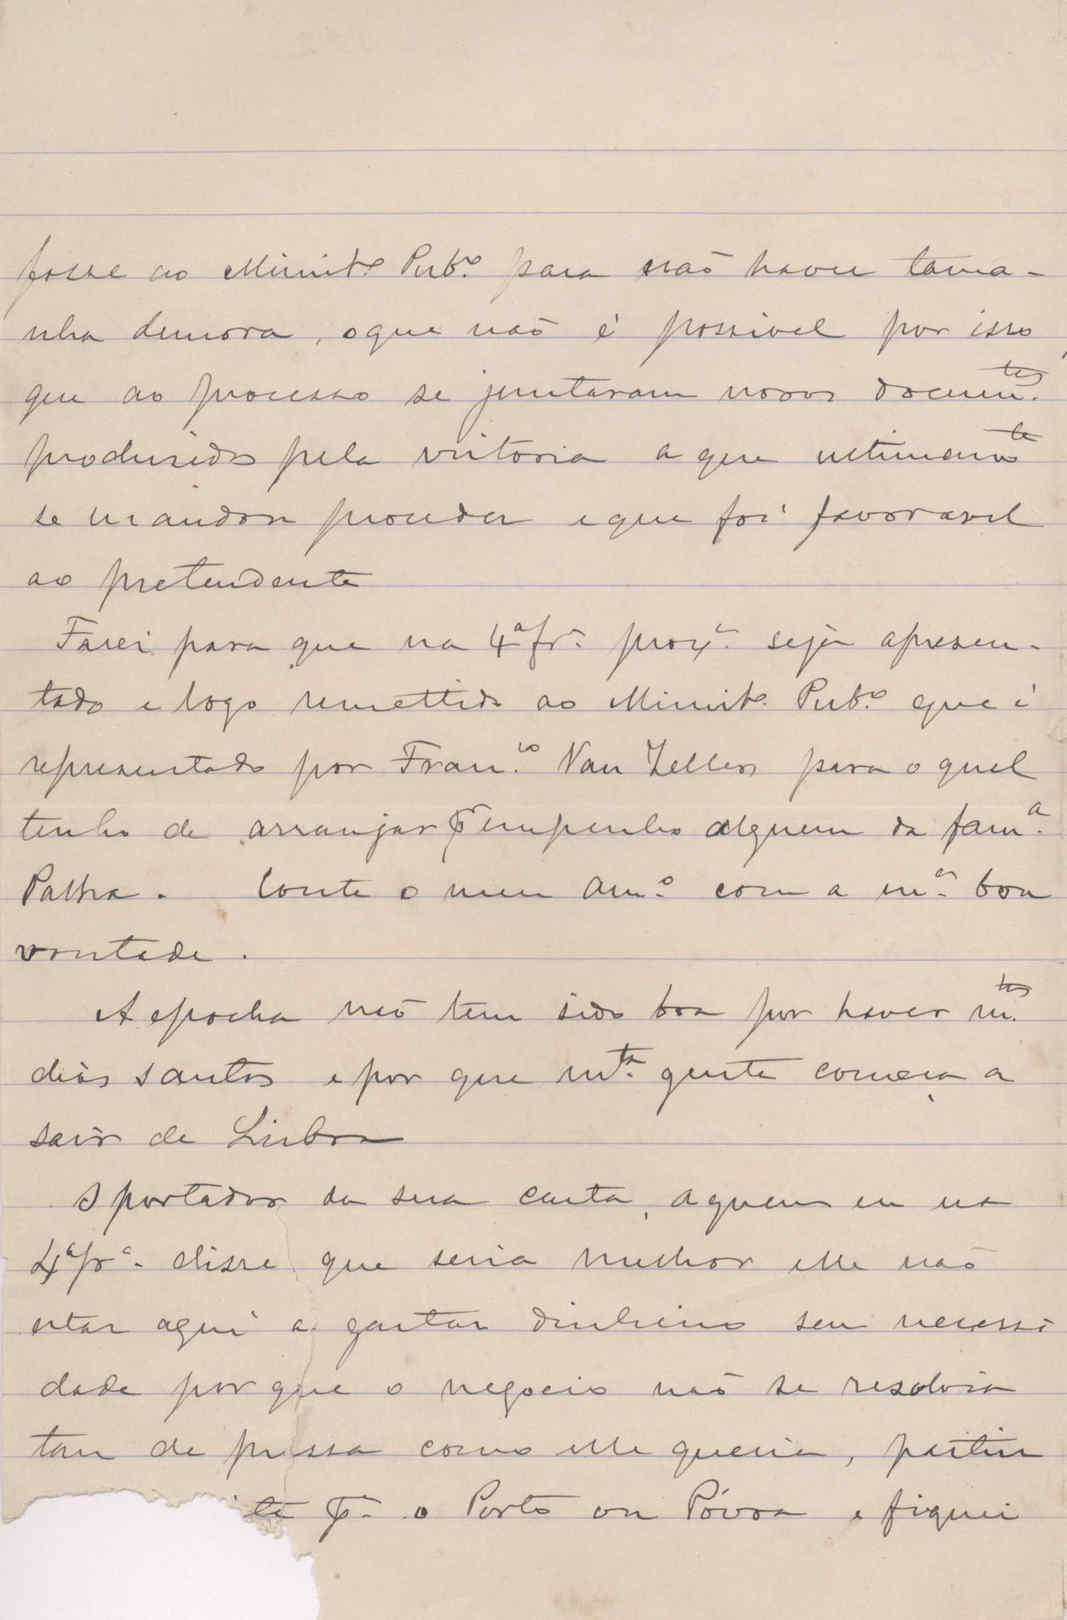 fosse ao Ministº Pubº para não haver tama-
nha demora, o que não é possivel por isso,
que ao processo se juntaram novos documtes.
produsidos pela vistoria a que ultimamte
se mandou proceder e que foi favoravel
ao pretendente
Farei para que na 4ª frª proxª seja apresen-
tado e logo remettido ao Ministº Pubº que é
representado por Francº Van Zeller para o qual
tenho de arranjar pª empenho alguem da famª.
Palha. Conte o meu Amº com a mª boa
vontade.
A epocha não tem sido boa por haver mtos
dias santos e por que mtª gente começa a
sair de Lisboa
O portador da sua carta, a quem eu na
4ª frª disse que seria melhor elle não
estar aqui a gastar dinheiro sem necessi
dade por que o negocio não se resolvia
tam de pressa como elle queria, partiu
te pª o Porto ou Póvoa e fiquei